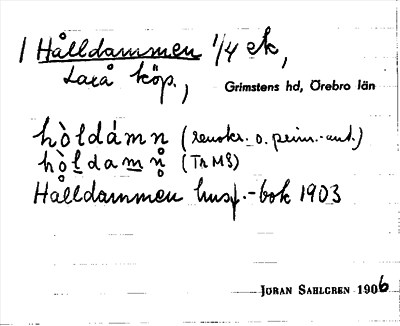 1 Hålldammen 1/4 ek,
Laxå köp.,
Grimstens hd, Örebro län
hòldámn (renskr. o. prim.-ant.)
hòldamn (Th MS)
Hålldammen husf.-bok 1903
JÖRAN SAHLGREN 1906